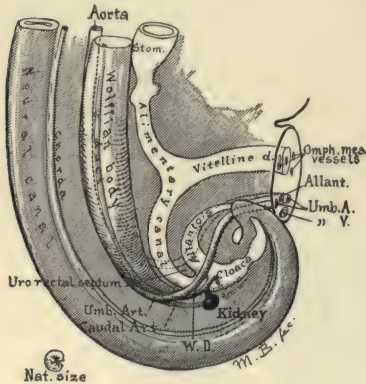 Aorta
Stom.
Medullary canal
Chorda
Wolffian body
Alimentary canal
Vitelline d.
Omph. mes.
vessels
Allant.
Umb. A.
" V.
Allantois
Cloaca
Uro rectal septum
Umb. Art.
Caudal Art.
Kidney
W. D.
M. B. fec.
Nat. size